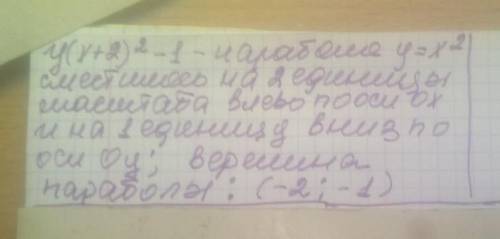 y(x+2)²-1 - парабола y=x²
сместилось на 2 единицы
масштаба влево по оси Ox
и на 1 единицу вниз по
оси Oy; вершина
параболы: (-2; -1)